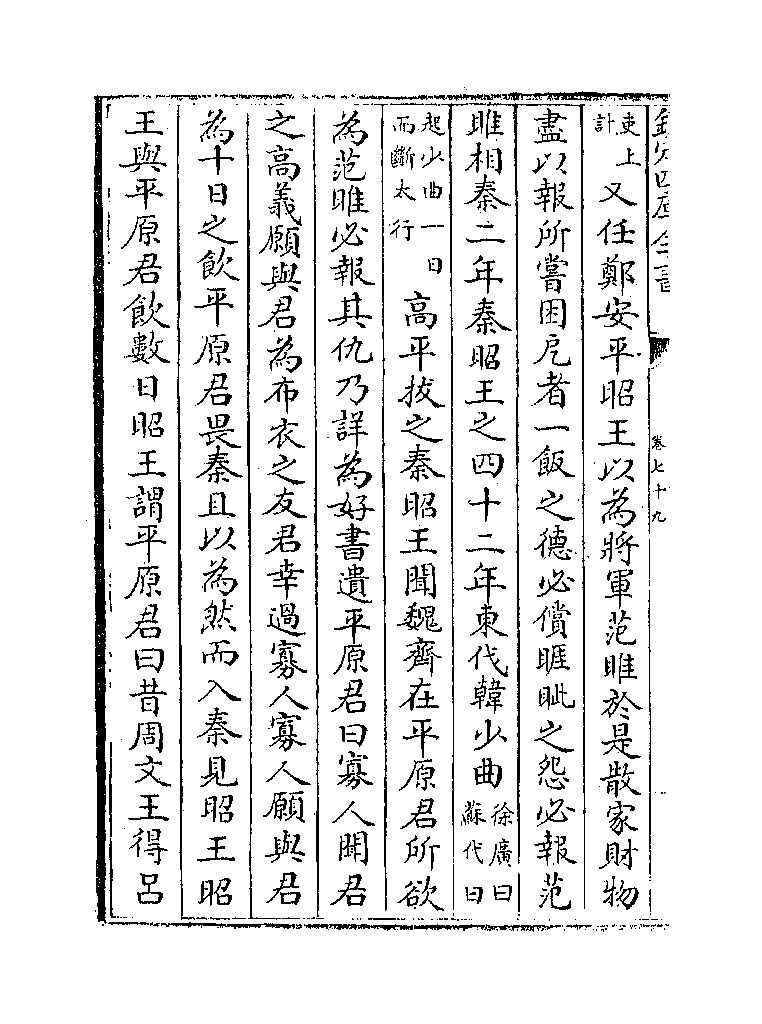 欽定四庫全書
卷七十九
吏上計又任鄭安平昭王以為將軍范睢於是散家財物
盡以報所嘗困戹者一飯之德必償睚眦之怨必報范
睢相秦二年秦昭王之四十二年東伐韓少曲徐廣曰蘇代曰
起少曲一日而斷太行高平拔之秦昭王聞魏齊在平原君所欲
為范睢必報其仇乃詳為好書遺平原君曰寡人聞君
之高義願與君為布衣之友君幸過寡人寡人願與君
為十日之飲平原君畏秦且以為然而入秦見昭王昭
王與平原君飲數日昭王謂平原君曰昔周文王得呂